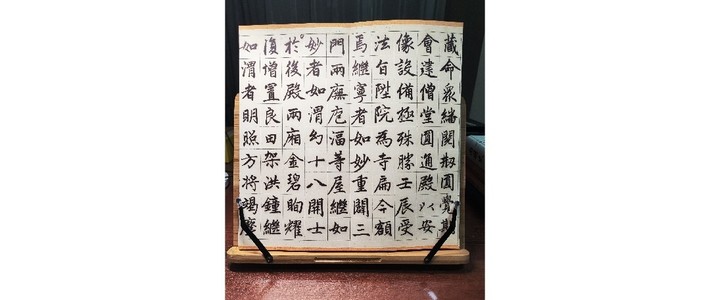 藏命衆緇閱披圓覺期
會建僧堂圓通殿以安
像設備極殊勝壬辰受
法旨陞院為寺扁今額
焉繼寧者如妙重開三
門兩廡庖湢等屋繼如
妙者如渭幻十八開士
於後殿兩廂金碧眴耀
復增置良田架洪鐘繼
如渭者明照方將竭